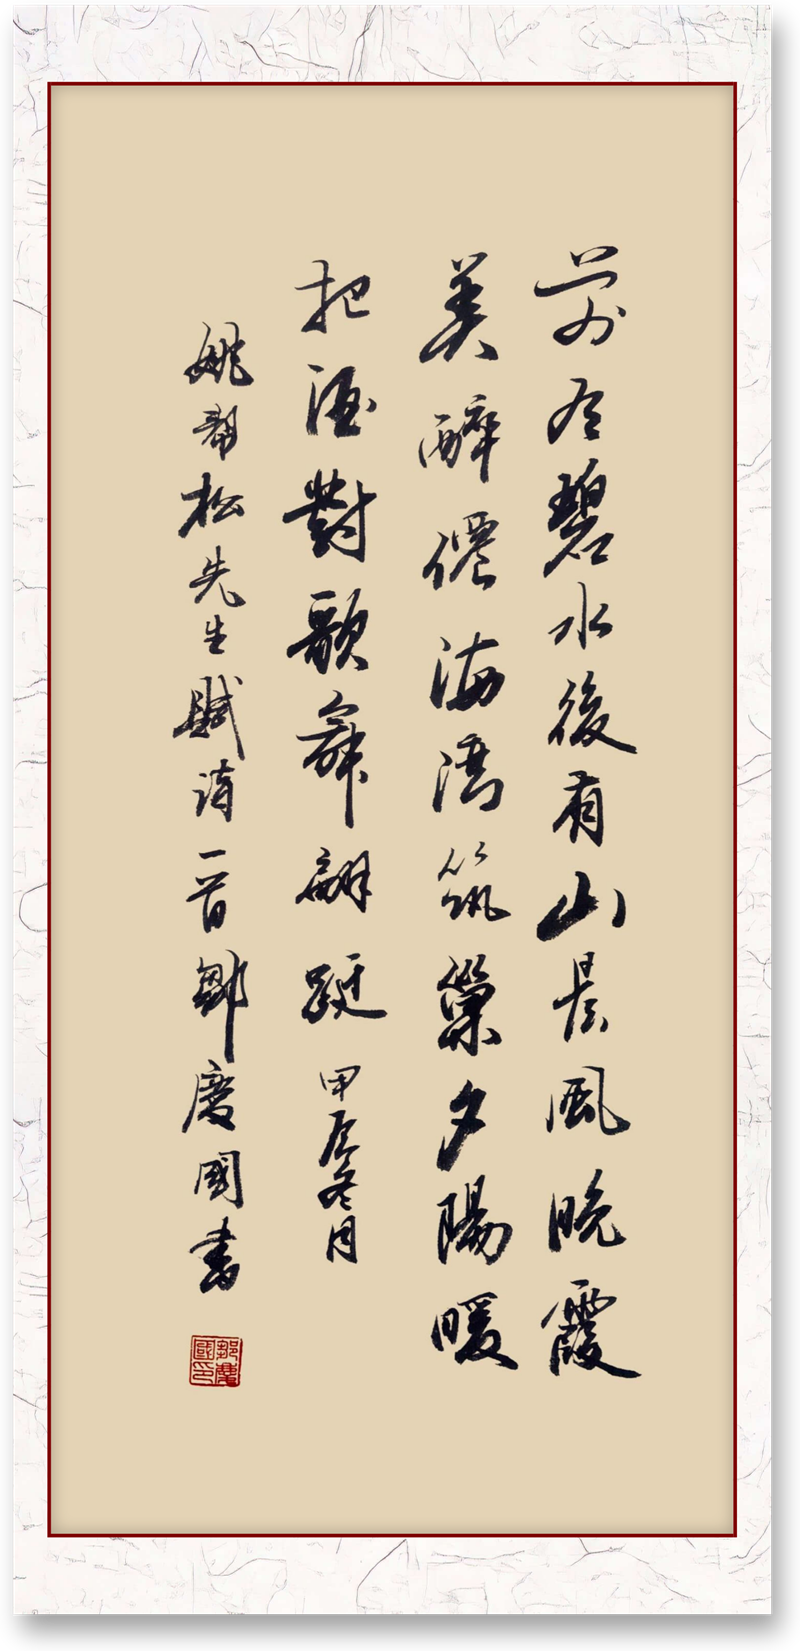 前有碧水後有山晨風晚霞
美醉僊海湾筑巢夕陽暖
把酒對歌舞翩跹甲辰冬月
姚幫松先生賦詩一首鄒慶國書
鄒慶國印